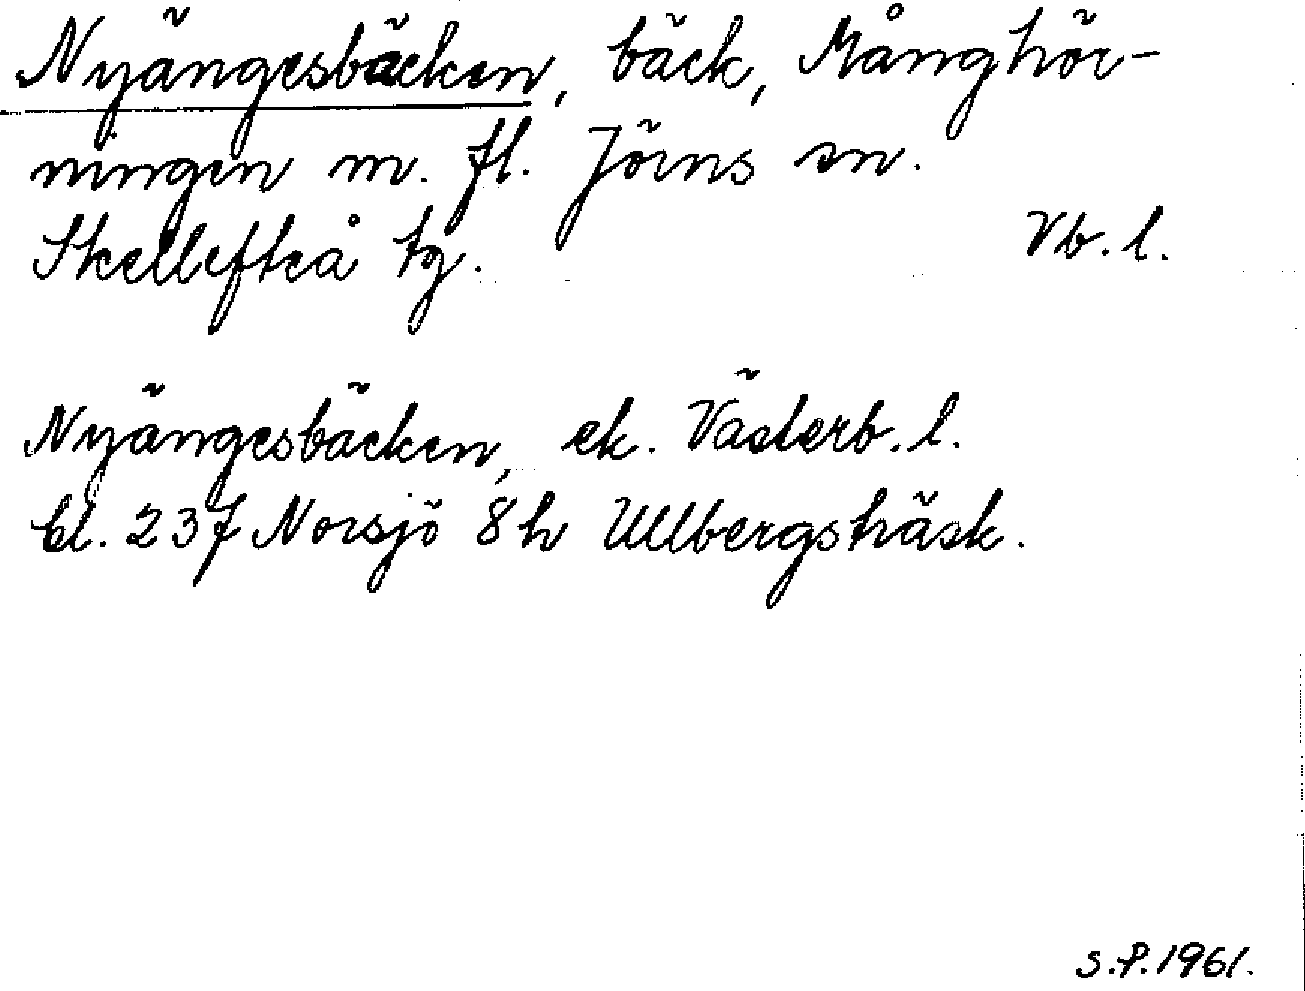 Nyängesbäcken, bäck, Månghör-
ningen m. fl. Jörns sn.
Skellefteå tg. Vb. l.
Nyängesbäcken, ek. Västerb. l.
bl. 237 Norsjö 8h Ullbergsträsk.
S.P. 1961.